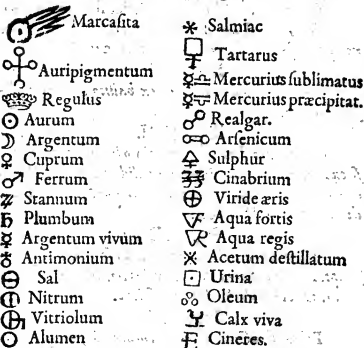 Marcaſita
Auripigmentum
Regulus
Aurum
Argentum
Cuprum
Ferrum
Stannum
Plumbum
Argentum vivum
Antimonium
Sal
Nitrum
Vitriolum
Alumen
Salmiac
Tartarus
Mercurius ſublimatus
Mercurius præcipitat.
Realgar.
Arſenicum
Sulphur
Cinabrium
Viride æris
Aqua fortis
Aqua regis
Acetum deſtillatum
Urina
Oleum
Calx viva
Cineres.